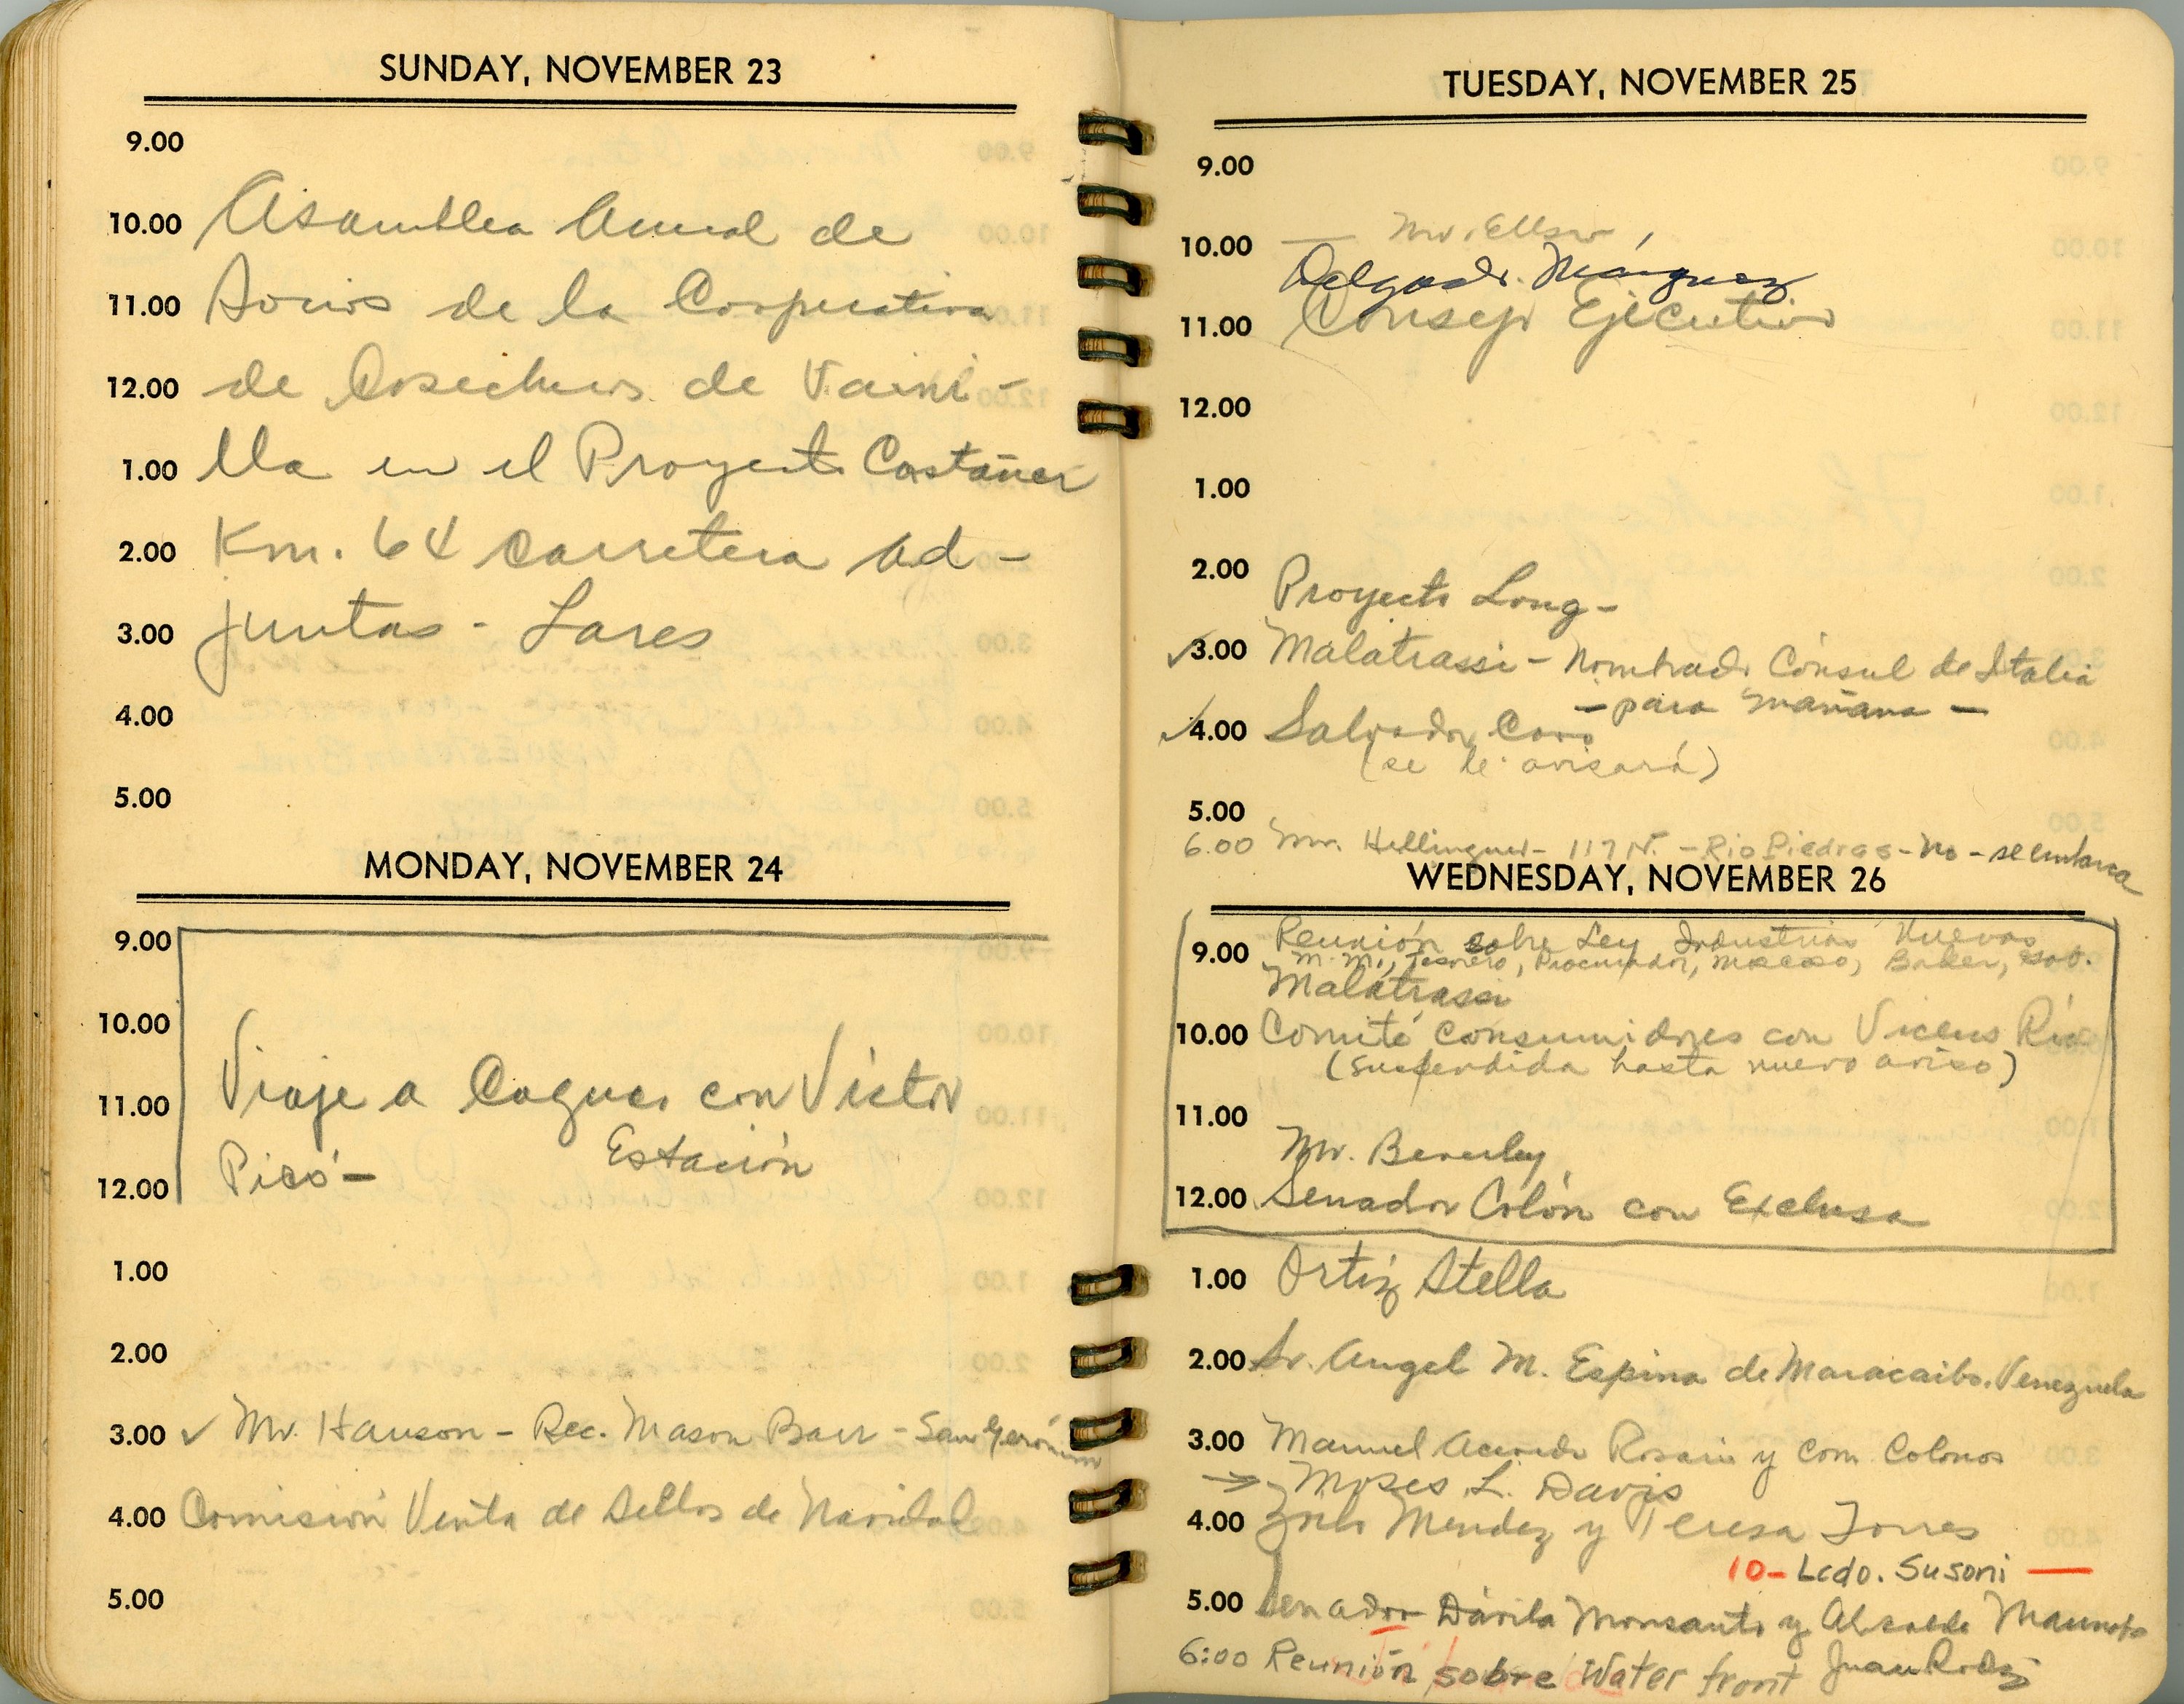 SUNDAY, NOVEMBER 23
9.00
10.00 Asamblea Anual de
11.00 Socios de la Cooperativa
12.00 de Cosecheros de Vaini-
1.00 lla en el Proyecto Castañer
2.00 Km. 64 carretera Ad-
3.00 juntas - Lares
4.00
5.00
MONDAY, NOVEMBER 24
9.00
10.00
11.00 Viaje a Caguas con Víctor
Estación
12.00 Picó-
1.00
2.00
3.00 ✓ Mr. Hanson - Rec. Mason Barr - San Gerónimo
4.00 Comisión Venta de Sellos de Navidad
5.00
TUESDAY, NOVEMBER 25
9.00
10.00 — Mr.
Delgado Márquez
11.00 Consejo Ejecutivo
12.00
1.00
2.00 Proyecto Long-
✓3.00 Malatrassi - Nombrado Cónsul de Italia
- para mañana -
✓4.00 Salvador Caro
(se le avisará)
5.00
6.00 Mr. Hellinguer - 117 N. - Rio Piedras - No - se embarca
WEDNESDAY, NOVEMBER 26
9.00 Reunión sobre Ley Industrias Nuevas
M. M., Tesorero, Procurador, Moscoso, Baker, Gob.
Malatrassi
10.00 Comité Consumidores con Vicens Ríos
(suspendida hasta nuevo aviso)
11.00
Mr. Beverley
12.00 Senador Colón con Exclusa
1.00 Ortiz Stella
2.00 Sr. Angel M. Espina de Maracaibo, Venezuela
3.00 Manuel Acevedo Rosario y Com. Colonos
→ Moses L. Davis
4.00 Zoilo Mendez y Teresa Torres
10- Lcdo. Susoni —
5.00 Senador Dávila Monsanto y Alcalde Maunabo
6:00 Reunión sobre Water front Juan Rodz